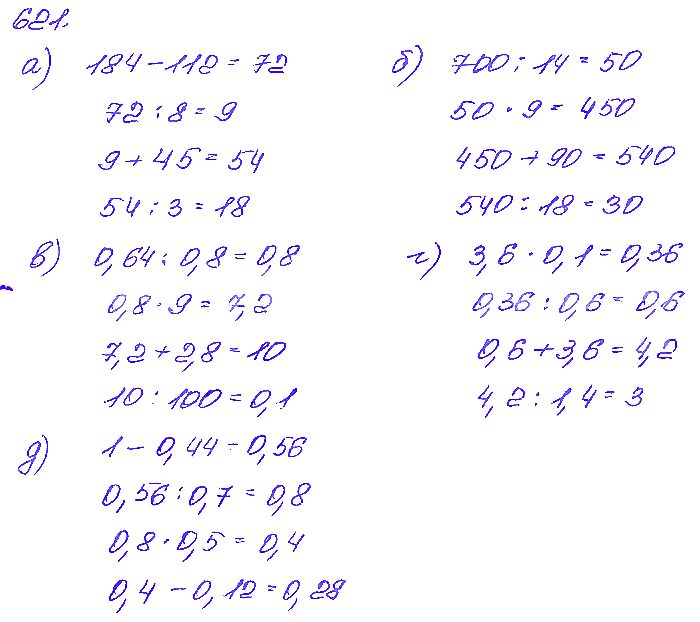 621.
а) 184 - 112 = 72
72 : 8 = 9
9 + 45 = 54
54 : 3 = 18
б) 700 : 14 = 50
50 · 9 = 450
450 + 90 = 540
540 : 18 = 30
в) 0,64 : 0,8 = 0,8
0,8 · 9 = 7,2
7,2 + 2,8 = 10
10 : 100 = 0,1
г) 3,6 · 0,1 = 0,36
0,36 : 0,6 = 0,6
0,6 + 3,6 = 4,2
4,2 : 1,4 = 3
д) 1 - 0,44 = 0,56
0,56 : 0,7 = 0,8
0,8 · 0,5 = 0,4
0,4 - 0,12 = 0,28